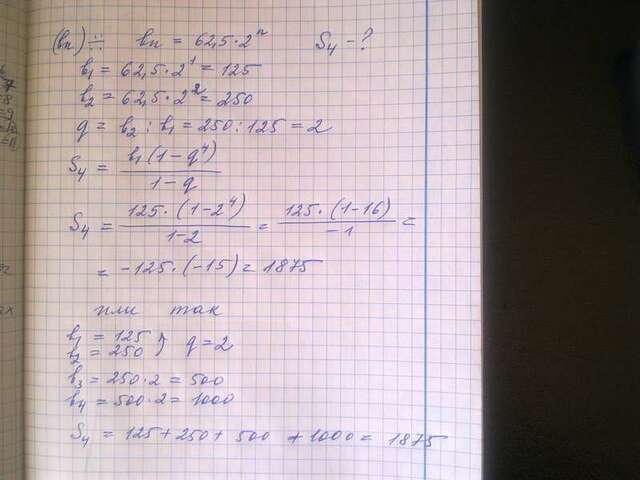 (bn) ÷ bn = 62,5·2ⁿ S₄ - ?
b₁ = 62,5·2¹ = 125
b₂ = 62,5·2² = 250
q = b₂ : b₁ = 250 : 125 = 2
S₄ = b₁(1-q⁴) / 1-q
S₄ = 125·(1-2⁴) / 1-2 = 125·(1-16) / -1 =
= -125·(-15) = 1875
или так
b₁ = 125
b₂ = 250 } q = 2
b₃ = 250·2 = 500
b₄ = 500·2 = 1000
S₄ = 125 + 250 + 500 + 1000 = 1875